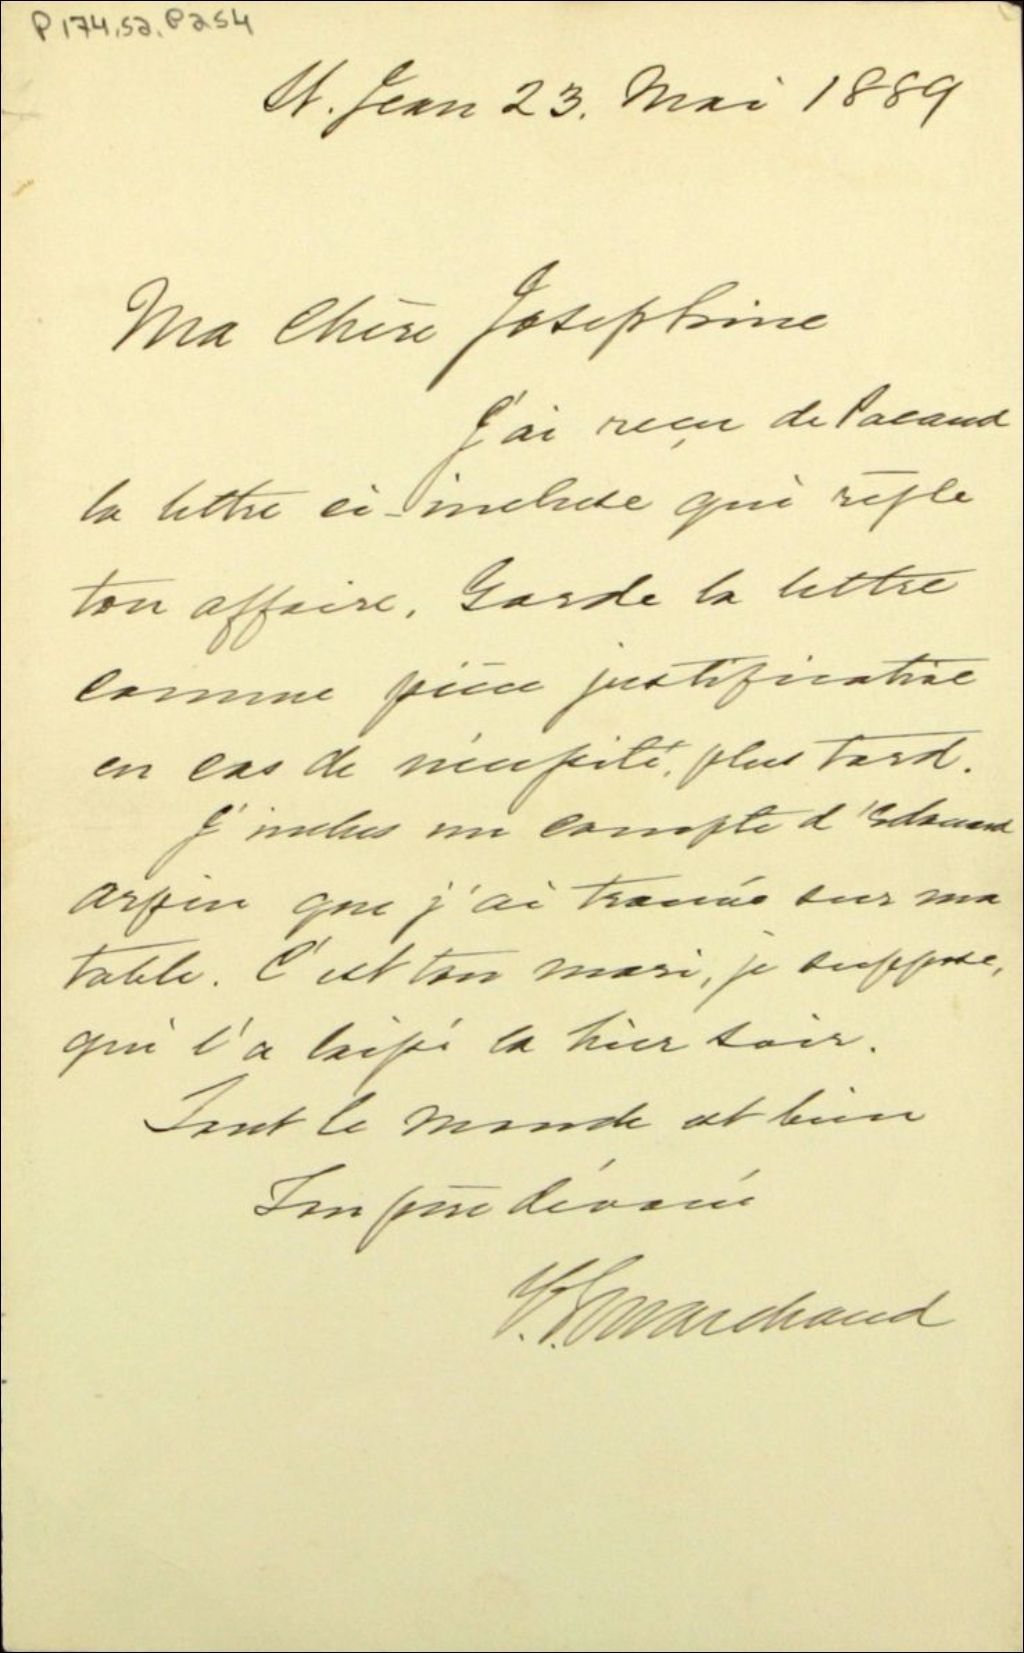 P174,S2,P254
St. Jean 23. Mai 1889
Ma Chère Josephine
J'ai reçu de Pacaud
la lettre ci-incluse qui règle
ton affaire. Garde la lettre
comme pièce justificative
en cas de nécessité, plus tard.
J'inclus un compte d'Edouard
Arpin que j'ai trouvé sur ma
table. C'est ton mari, je suppose,
qui l'a laissé là hier soir.
Tout le monde est bien
Ton père dévoué
F.G. Marchand